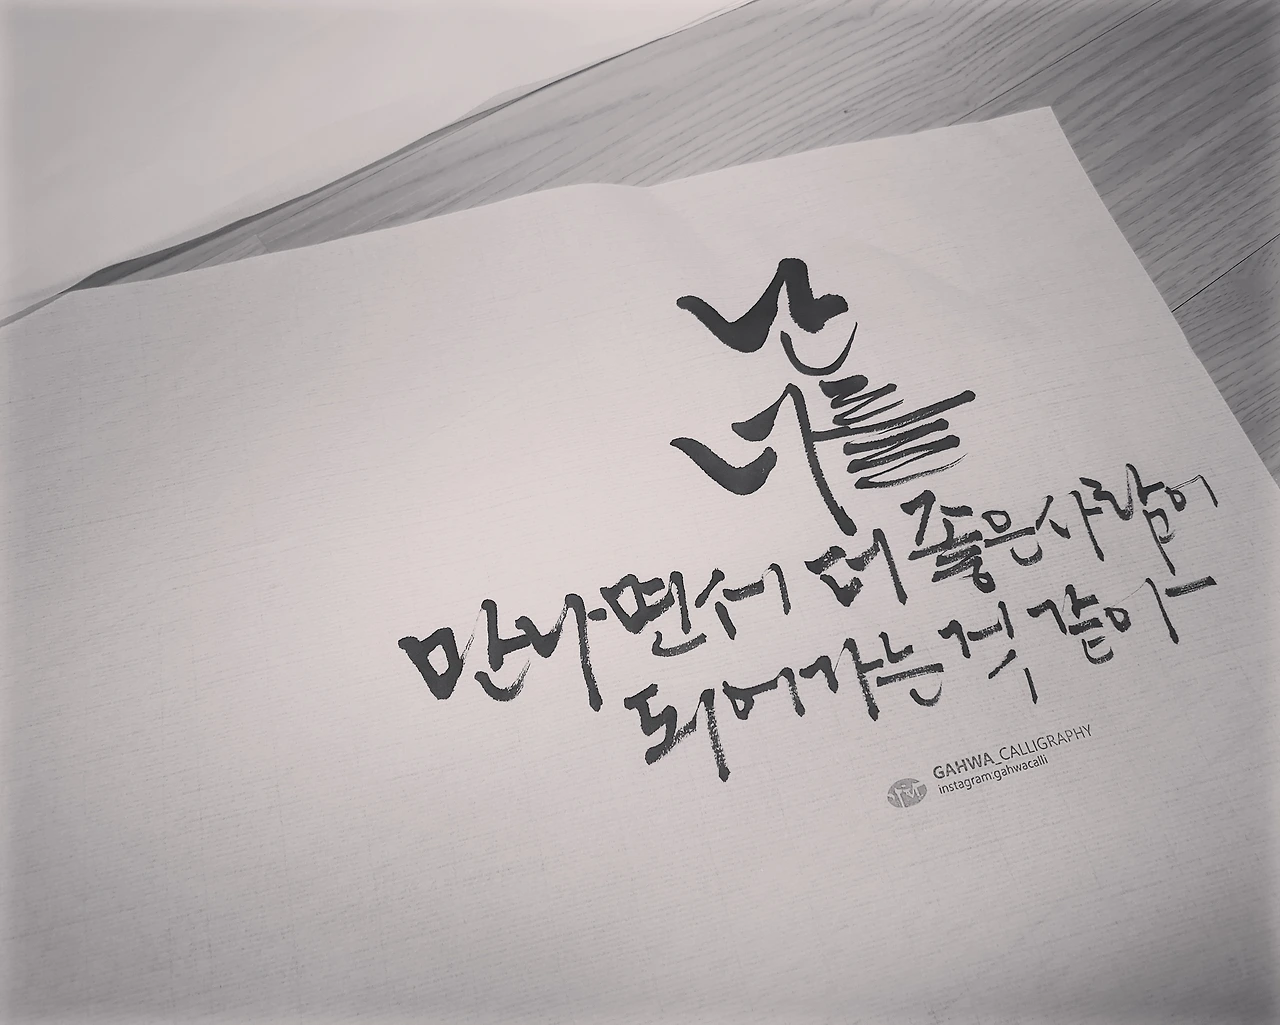 난
너를
만나면서 더 좋은사람이
되어가는 것 같아
GAHWA_CALLIGRAPHY
instagram:gahwacalli